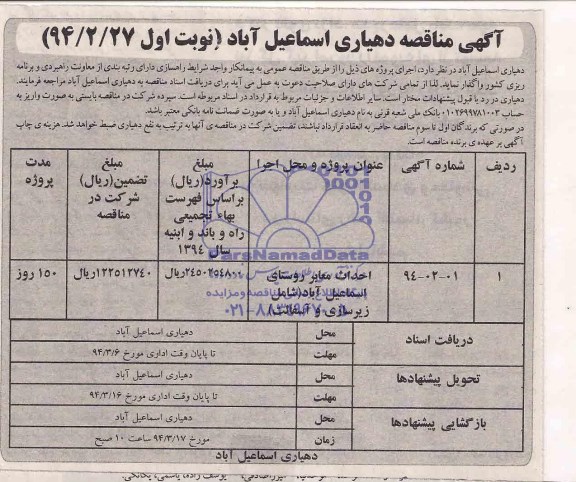 آگهی مناقصه دهیاری اسماعیل آباد (نوبت اول ۹۴/۲/۲۷)
دهیاری اسماعیل آباد در نظر دارد، اجرای پروژه های ذیل را از طریق مناقصه عمومی به پیمانکار واجد شرایط راهسازی دارای رتبه بندی از معاونت راهبردی و برنامه
ریزی کشور واگذار نماید. لذا از تمامی شرکت های دارای صلاحیت دعوت به عمل می آید برای دریافت اسناد مناقصه به دهیاری اسماعیل آباد مراجعه فرمایند.
دهیاری در رد یا قبول پیشنهادات مختار است. سایر اطلاعات و جزئیات مربوط به قرارداد در اسناد مربوطه است. سپرده شرکت در مناقصه بایستی به صورت واریز به
حساب ۰۱۰۲۶۹۹۷۸۱۰۰۳ بانک ملی شعبه قرنی به نام دهیاری اسماعیل آباد و یا به صورت ضمانت نامه بانکی معتبر باشد.
در صورتی که برندگان اول تا سوم مناقصه حاضر به انعقاد قرارداد نباشند، تضمین شرکت در مناقصه ی آنها به ترتیب به نفع دهیاری ضبط خواهد شد. هزینه ی چاپ
آگهی بر عهده ی برنده مناقصه است.
ردیف
شماره آگهی
عنوان پروژه و محل اجرا
مبلغ
برآورد(ریال)
براساس فهرست
بهاء تجمیعی
راه و باند و ابنیه
سال ۱۳۹۴
مبلغ
تضمین(ریال)
شرکت در
مناقصه
مدت
پروژه
۱
۹۴-۰۲-۰۱
احداث معابر روستای
اسماعیل آباد(شامل
زیرسازی و آسفالت)
۲۴۵۰۲۵۴۸۰۰ریال
۱۲۲۵۱۲۷۴۰ریال
۱۵۰ روز
ParsNamadData
۰۲۱-۸۸۳۴۹۶۷۰
دریافت اسناد
محل
دهیاری اسماعیل آباد
مهلت
تا پایان وقت اداری مورخ ۹۴/۳/۶
تحویل پیشنهادها
محل
دهیاری اسماعیل آباد
مهلت
تا پایان وقت اداری مورخ ۹۴/۳/۱۶
بازگشایی پیشنهادها
محل
دهیاری اسماعیل آباد
زمان
مورخ ۹۴/۳/۱۷ ساعت ۱۰ صبح
دهیاری اسماعیل آباد